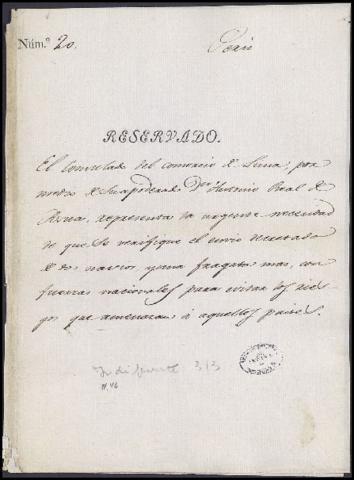 Núm.º 20.
Perú
RESERVADO.
El Consulado del comercio de Lima, por
medio de su apoderado Dn. Antonio Real de
representa la urgente necesidad
de que se verifique el envio decretado
de dos navios y una fragata mas, con
fuerzas nacionales para evitar los ries-
gos que amenazan á aquellos paises.
Indiferente 313
N. 46